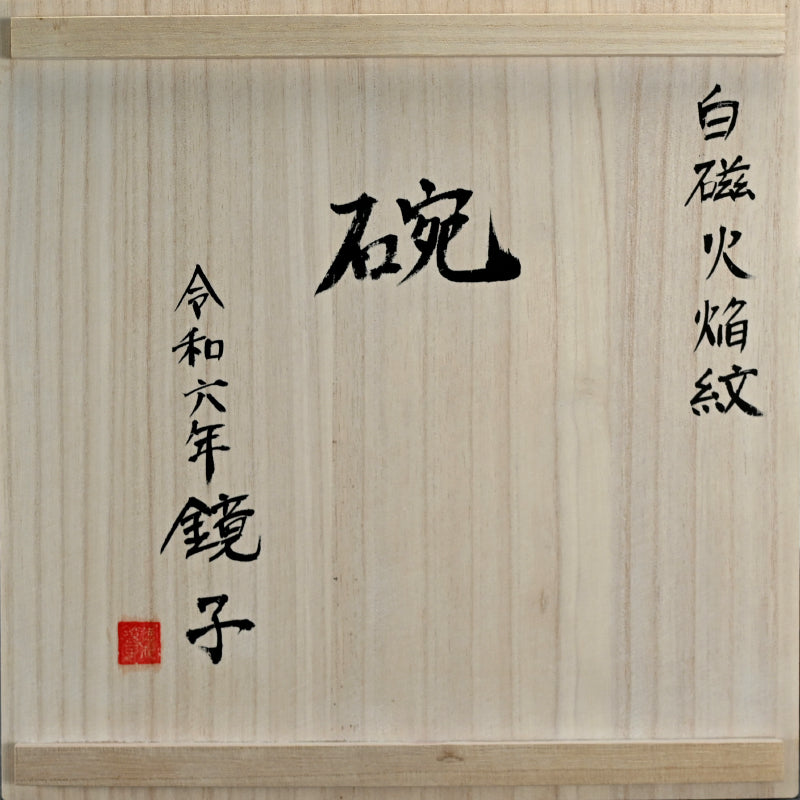 白磁火焔紋
碗
令和六年 鏡子